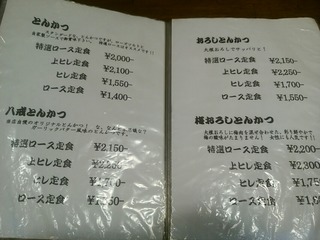 とんかつ
特選ロース定食 ¥2,000-
上ヒレ定食 ¥2,100-
ヒレ定食 ¥1,550-
ロース定食 ¥1,400-
八戒とんかつ
特選ロース定食 ¥2,150-
上ヒレ定食 ¥2,250-
ヒレ定食 ¥1,700-
ロース定食
おろしとんかつ
大根おろしでサッパリと!
特選ロース定食 ¥2,150-
上ヒレ定食 ¥2,250-
ヒレ定食 ¥1,700-
ロース定食 ¥1,550-
桜おろしとんかつ
特選ロース定食 ¥2,200-
上ヒレ定食 ¥2,300-
ヒレ定食 ¥1,75
ロース定食